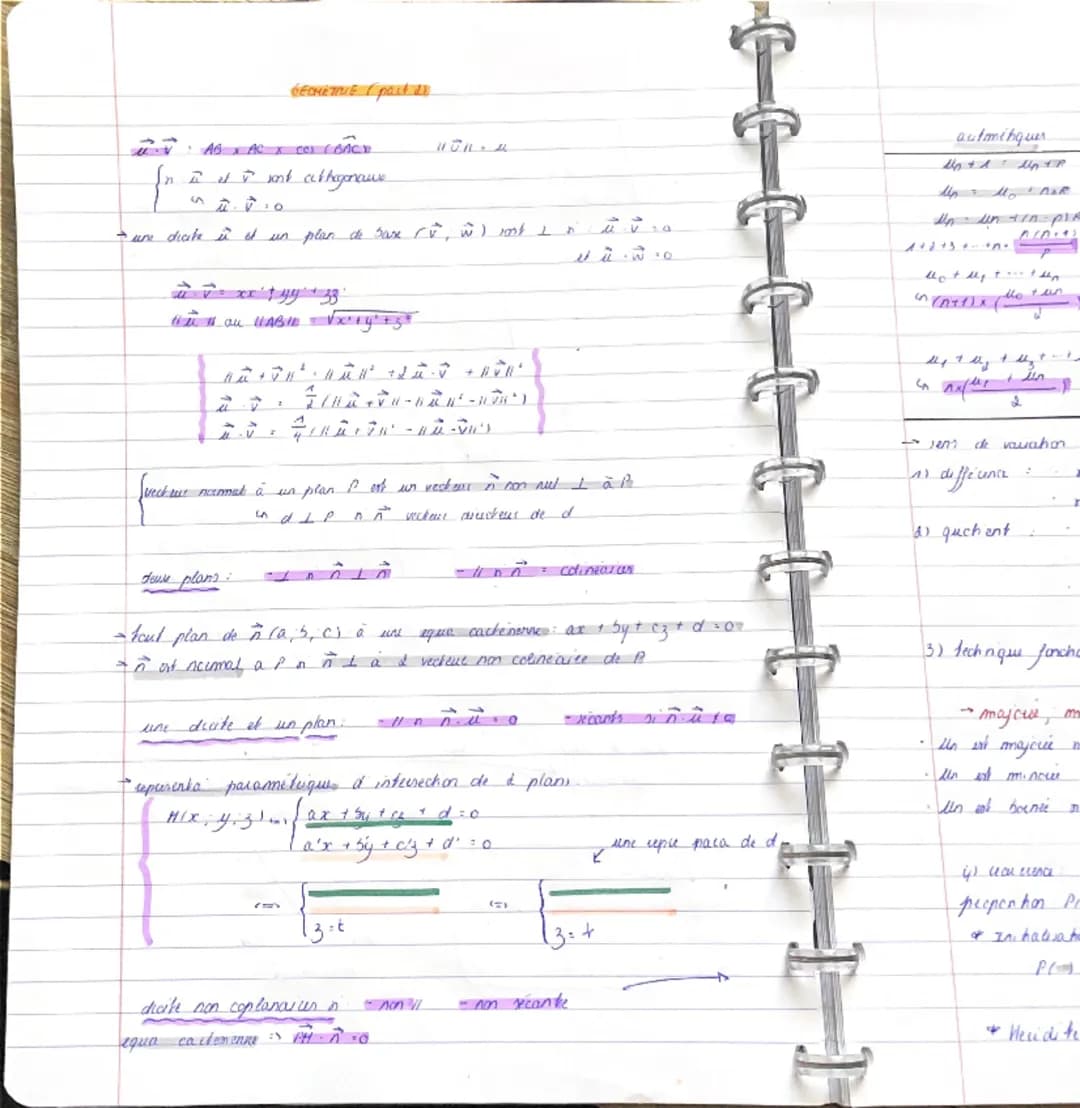 GÉOMÉTRIE (part 2)
u⃗.v⃗ = AB x AC x cos (BAC) ||v⃗|| = u
si u⃗ et v⃗ sont orthogonaux
u⃗.v⃗ = 0
→ une droite u⃗ et un plan de base (v⃗, w⃗) sont ⊥ si u⃗.v⃗ = 0
et u⃗.w⃗ = 0
u⃗.v⃗ = xx' + yy' + zz'
||u⃗|| ou ||AB|| = √x²+y²+z²
||u⃗ + v⃗||² = ||u⃗||² + 2 u⃗.v⃗ + ||v⃗||²
u⃗.v⃗ = 1/2 (||u⃗ + v⃗|| - ||u⃗||² - ||v⃗||²)
u⃗.v⃗ = 1/4 (||u⃗ + v⃗||² - ||u⃗ - v⃗||²)
vecteur normal à un plan P est un vecteur n⃗ non nul ⊥ à P
d ⊥ P si n⃗ vecteur directeur de d
deux plans : - ⊥ si n⃗ ⊥ n⃗ - // si n⃗ = colinéaires
→ tout plan de n⃗ (a, b, c) à une equa cartésienne : ax + by + cz + d = 0
→ n⃗ est normal a P si n⃗ ⊥ à 2 vecteur non colinéaire de P
une droite et un plan : - // si n⃗.u⃗ = 0 - sécants si n⃗.u⃗ ≠ 0
→ représenta° paramétrique d'intersection de 2 plans.
M(x; y; z) ax + by + cz + d = 0
a'x + b'y + c'z + d' = 0
une repré para de d
<=> z = t <=> z = t
droite non coplanaires si - non // - non sécante
equa cartésienne => PM⃗.n⃗ = 0
aritmétiques
un + 1 = un + R
un = u0 + nxR
1 + 2 + 3 + ... + n = n(n+1)
u0 + u1 + ... + un
(n+1) x (u0 + un
u1 + u2 + u3 + ...
n x (u1 + un) / 2
→ sens de variation
1) différence :
2) quotient :
3) technique foncti
→ majorée, m
• Un est majorée
• Un est minorée
• Un est bornée
4) récurrence
proposition P
* Initialisati
* Hérédité